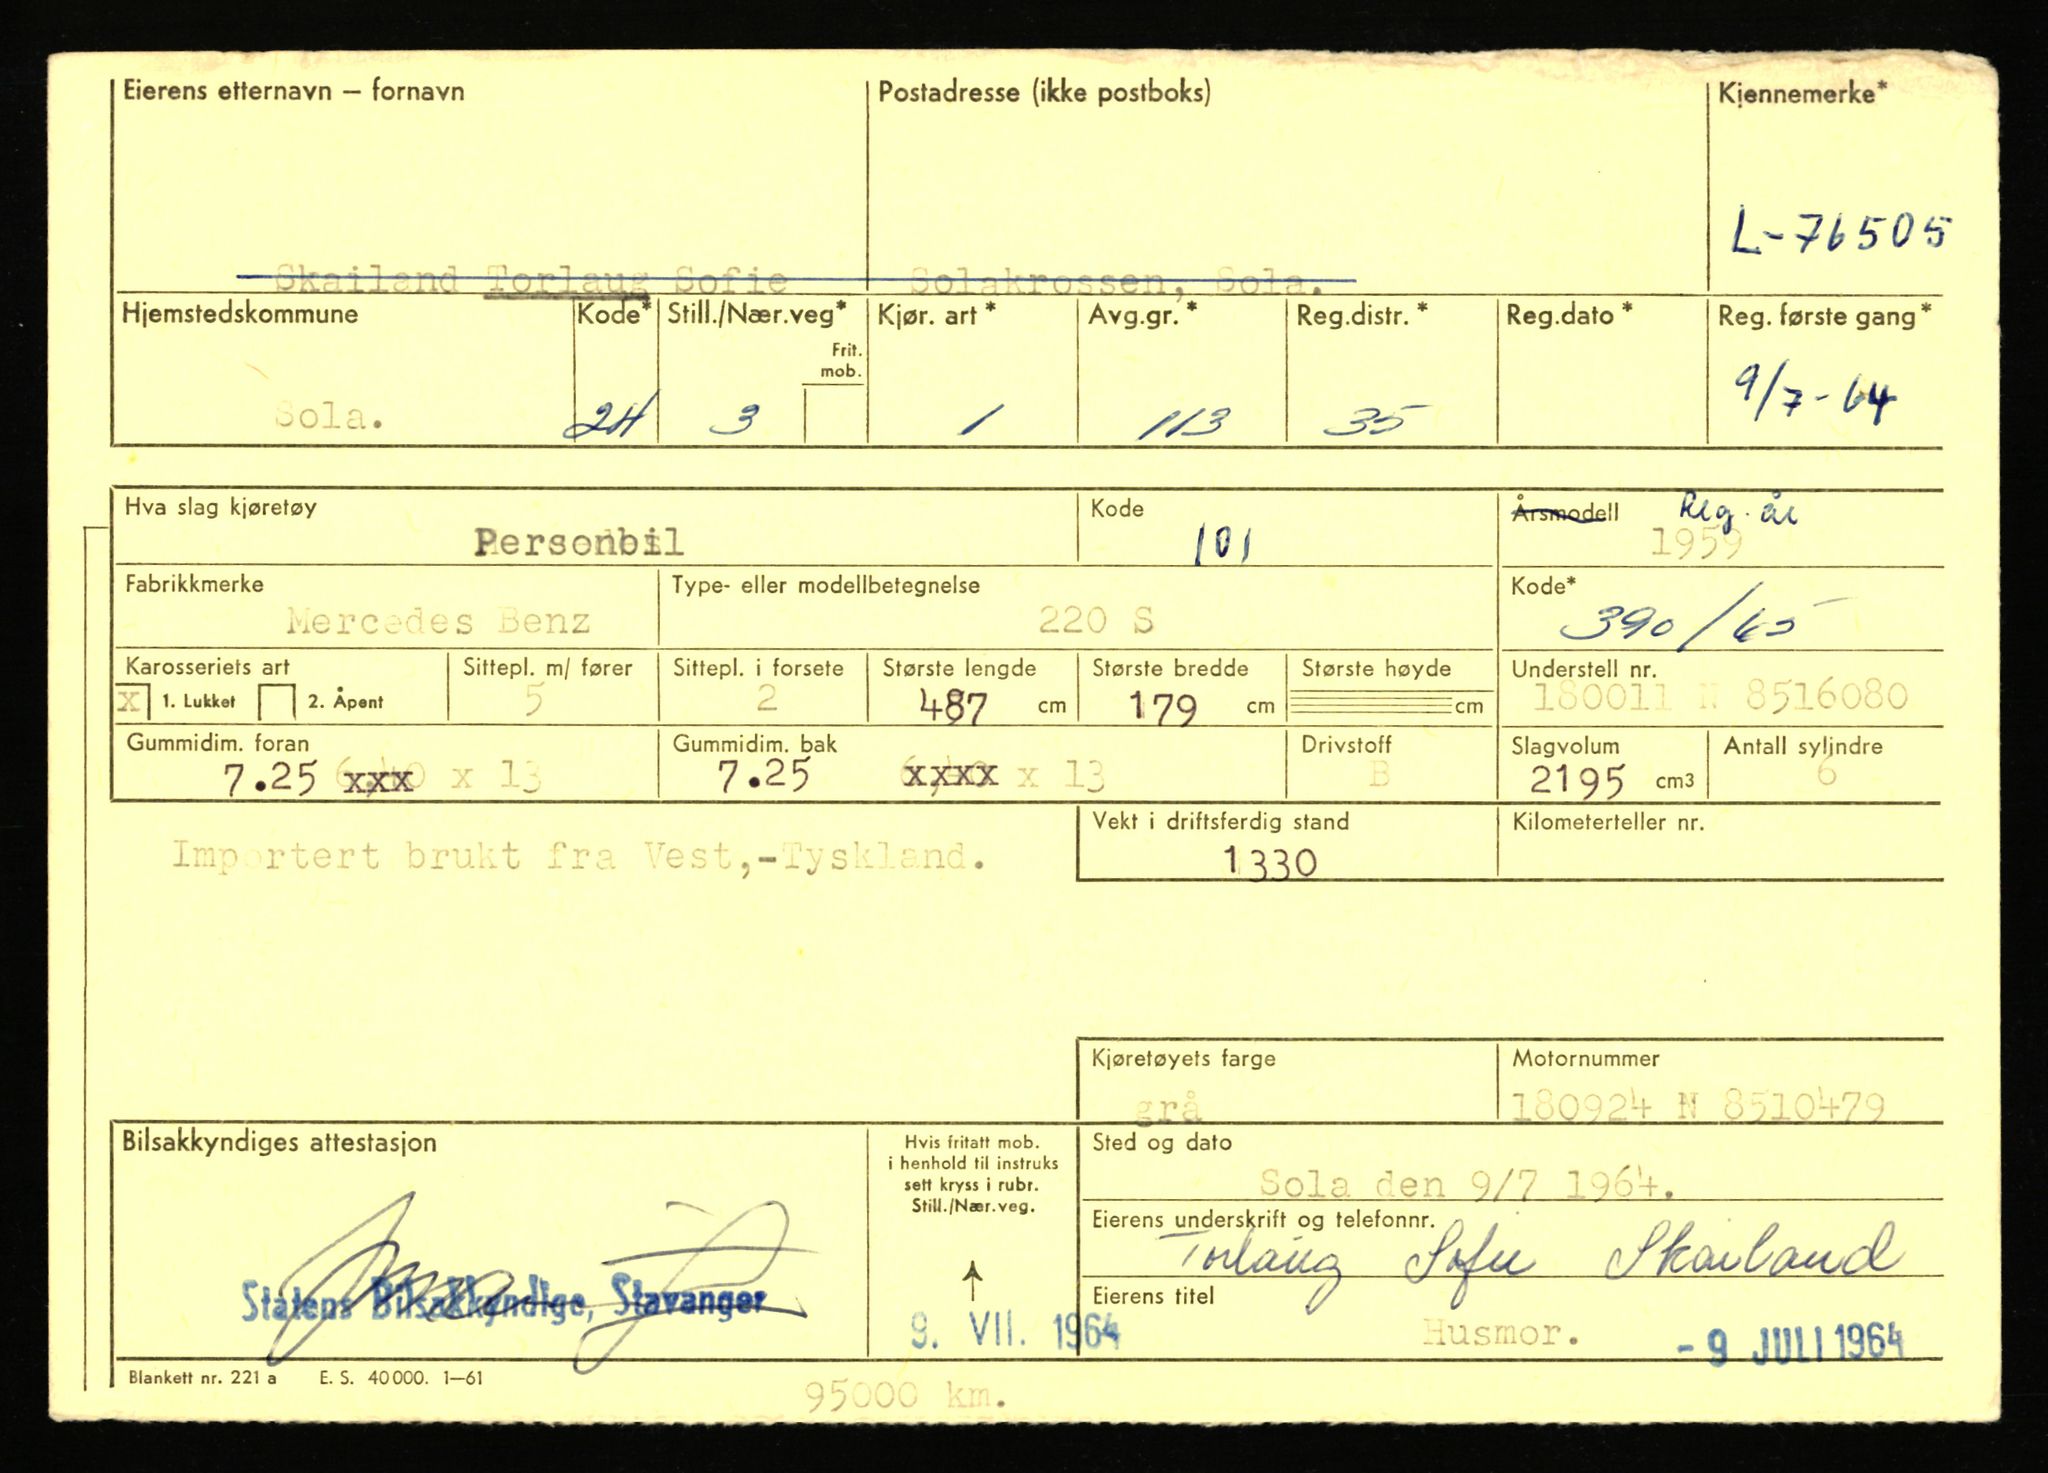 Eierens etternavn – fornavn Postadresse (ikke postboks) Kjennemerke*
L-76505
Skailand Torlaug Sofie Solakrossen, Sola.
Hjemstedskommune Kode* Still./Nær.veg* Kjør. art* Avg.gr.* Reg.distr.* Reg.dato* Reg. første gang*
Frit.
mob.
Sola. 24 3 1 113 35 9/7-64
Hva slag kjøretøy Kode Årsmodell Reg. år
Personbil 101 1959
Fabrikkmerke Type- eller modellbetegnelse Kode*
Mercedes Benz 220 S 390/65
Karosseriets art Sittepl. m/ fører Sittepl. i forsete Største lengde Største bredde Største høyde Understell nr.
x 1. Lukket 2. Åpent 5 2 487 cm 179 cm cm 180011 N 8516080
Gummidim. foran Gummidim. bak Drivstoff Slagvolum Antall sylindre
7.25 xxx x 13 7.25 xxxx x 13 B 2195 cm3 6
Vekt i driftsferdig stand Kilometerteller nr.
Importert brukt fra Vest,-Tyskland. 1330
Kjøretøyets farge Motornummer
grå 180924 N 8510479
Bilsakkyndiges attestasjon Hvis fritatt mob. Sted og dato
i henhold til instruks
sett kryss i rubr.
Still./Nær.veg.
Sola den 9/7 1964.
Eierens underskrift og telefonnr.
Torlaug Sofie Skailand
Statens Bilsakkyndige, Stavanger
Eierens titel
9. VII. 1964 Husmor. - 9 JULI 1964
Blankett nr. 221 a E. S. 40000. 1—61
95000 km.